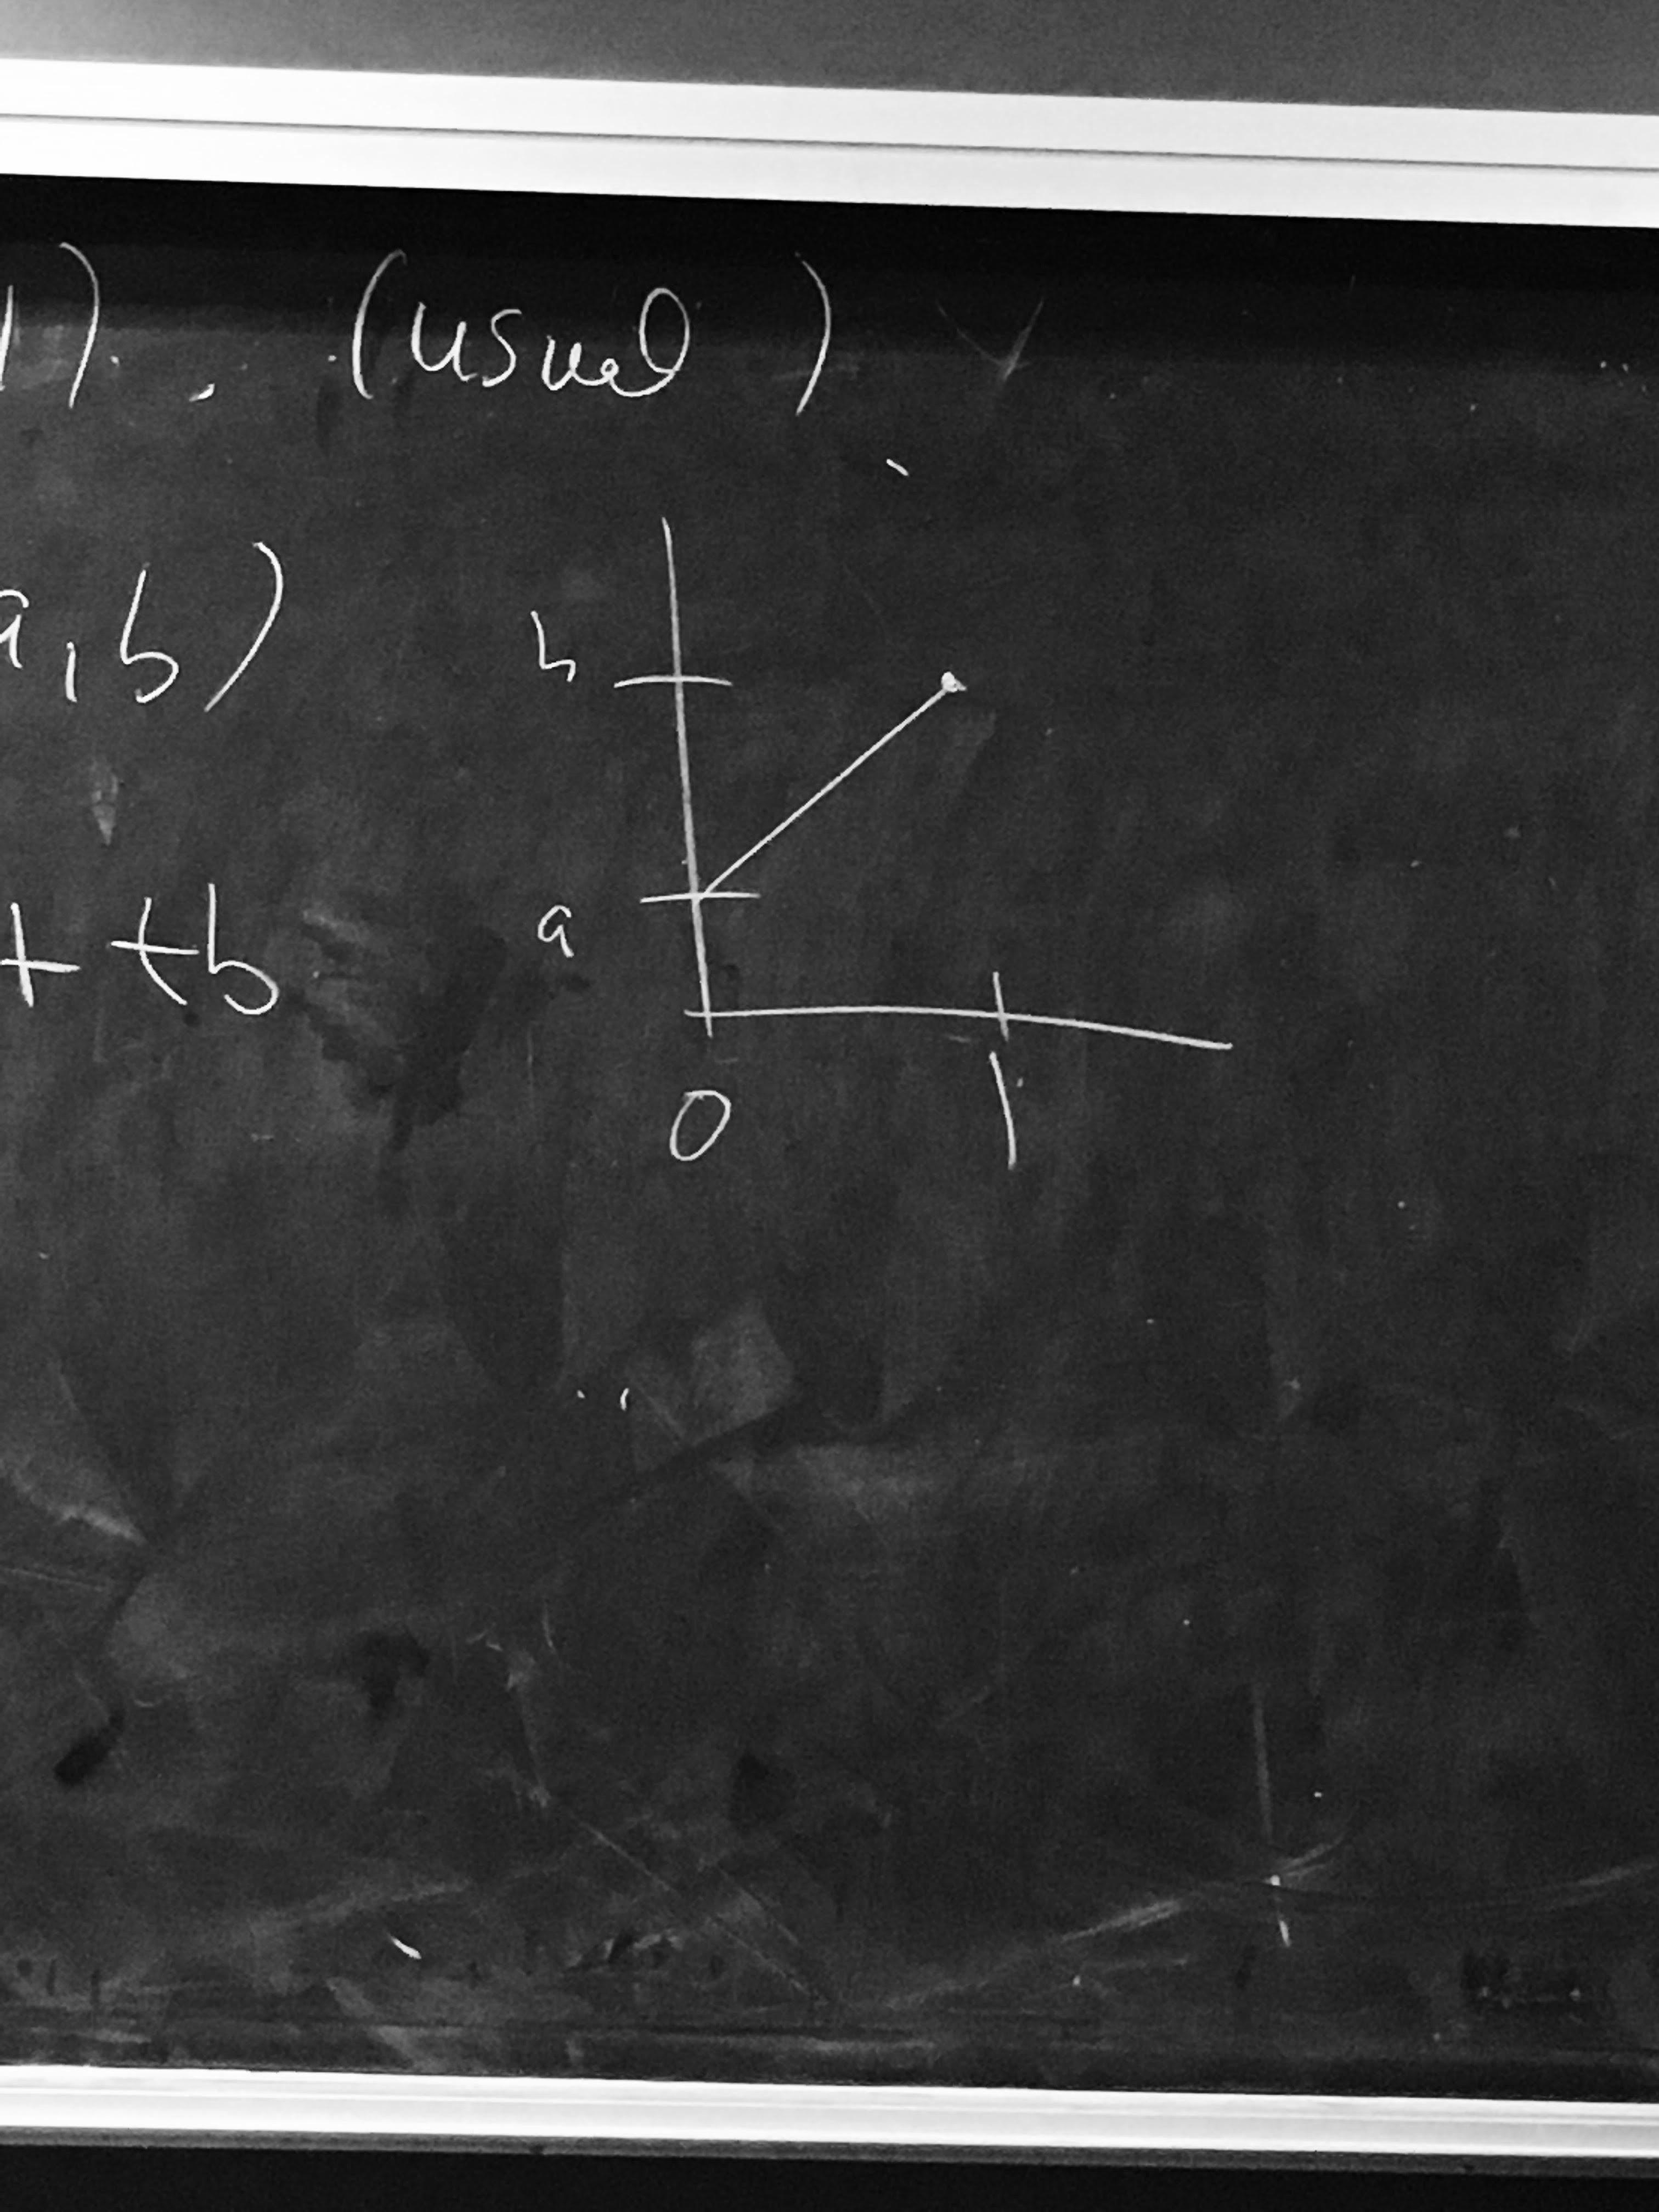 1). (usual)
a, b)
+ tb
b
a
0 1